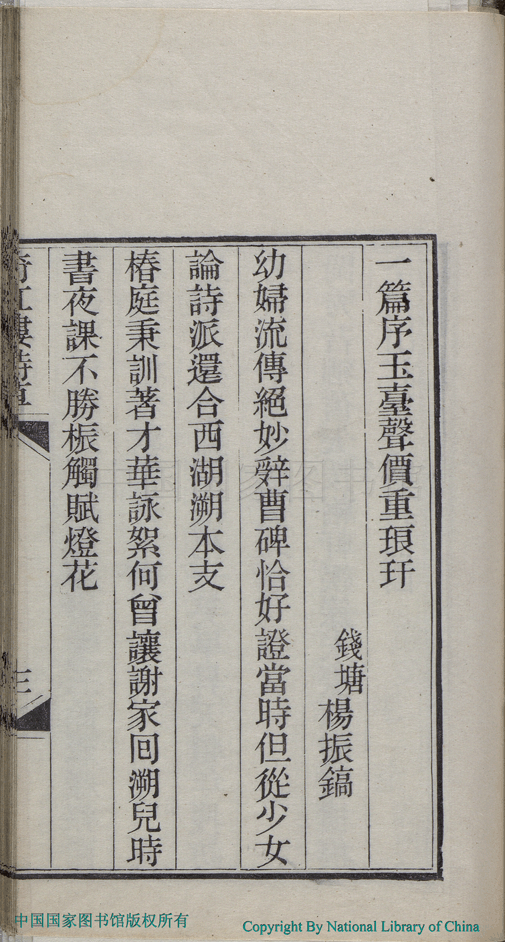 一篇序玉臺聲價重琅玕
錢塘楊振鎬
幼婦流傳絕妙辤曹碑恰好證當時但從少女
論詩派還合西湖溯本支
椿庭秉訓著才華詠絮何曾讓謝家囘溯兒時
書夜課不勝棖觸賦燈花
三
中国国家图书馆版权所有
Copyright By National Library of China